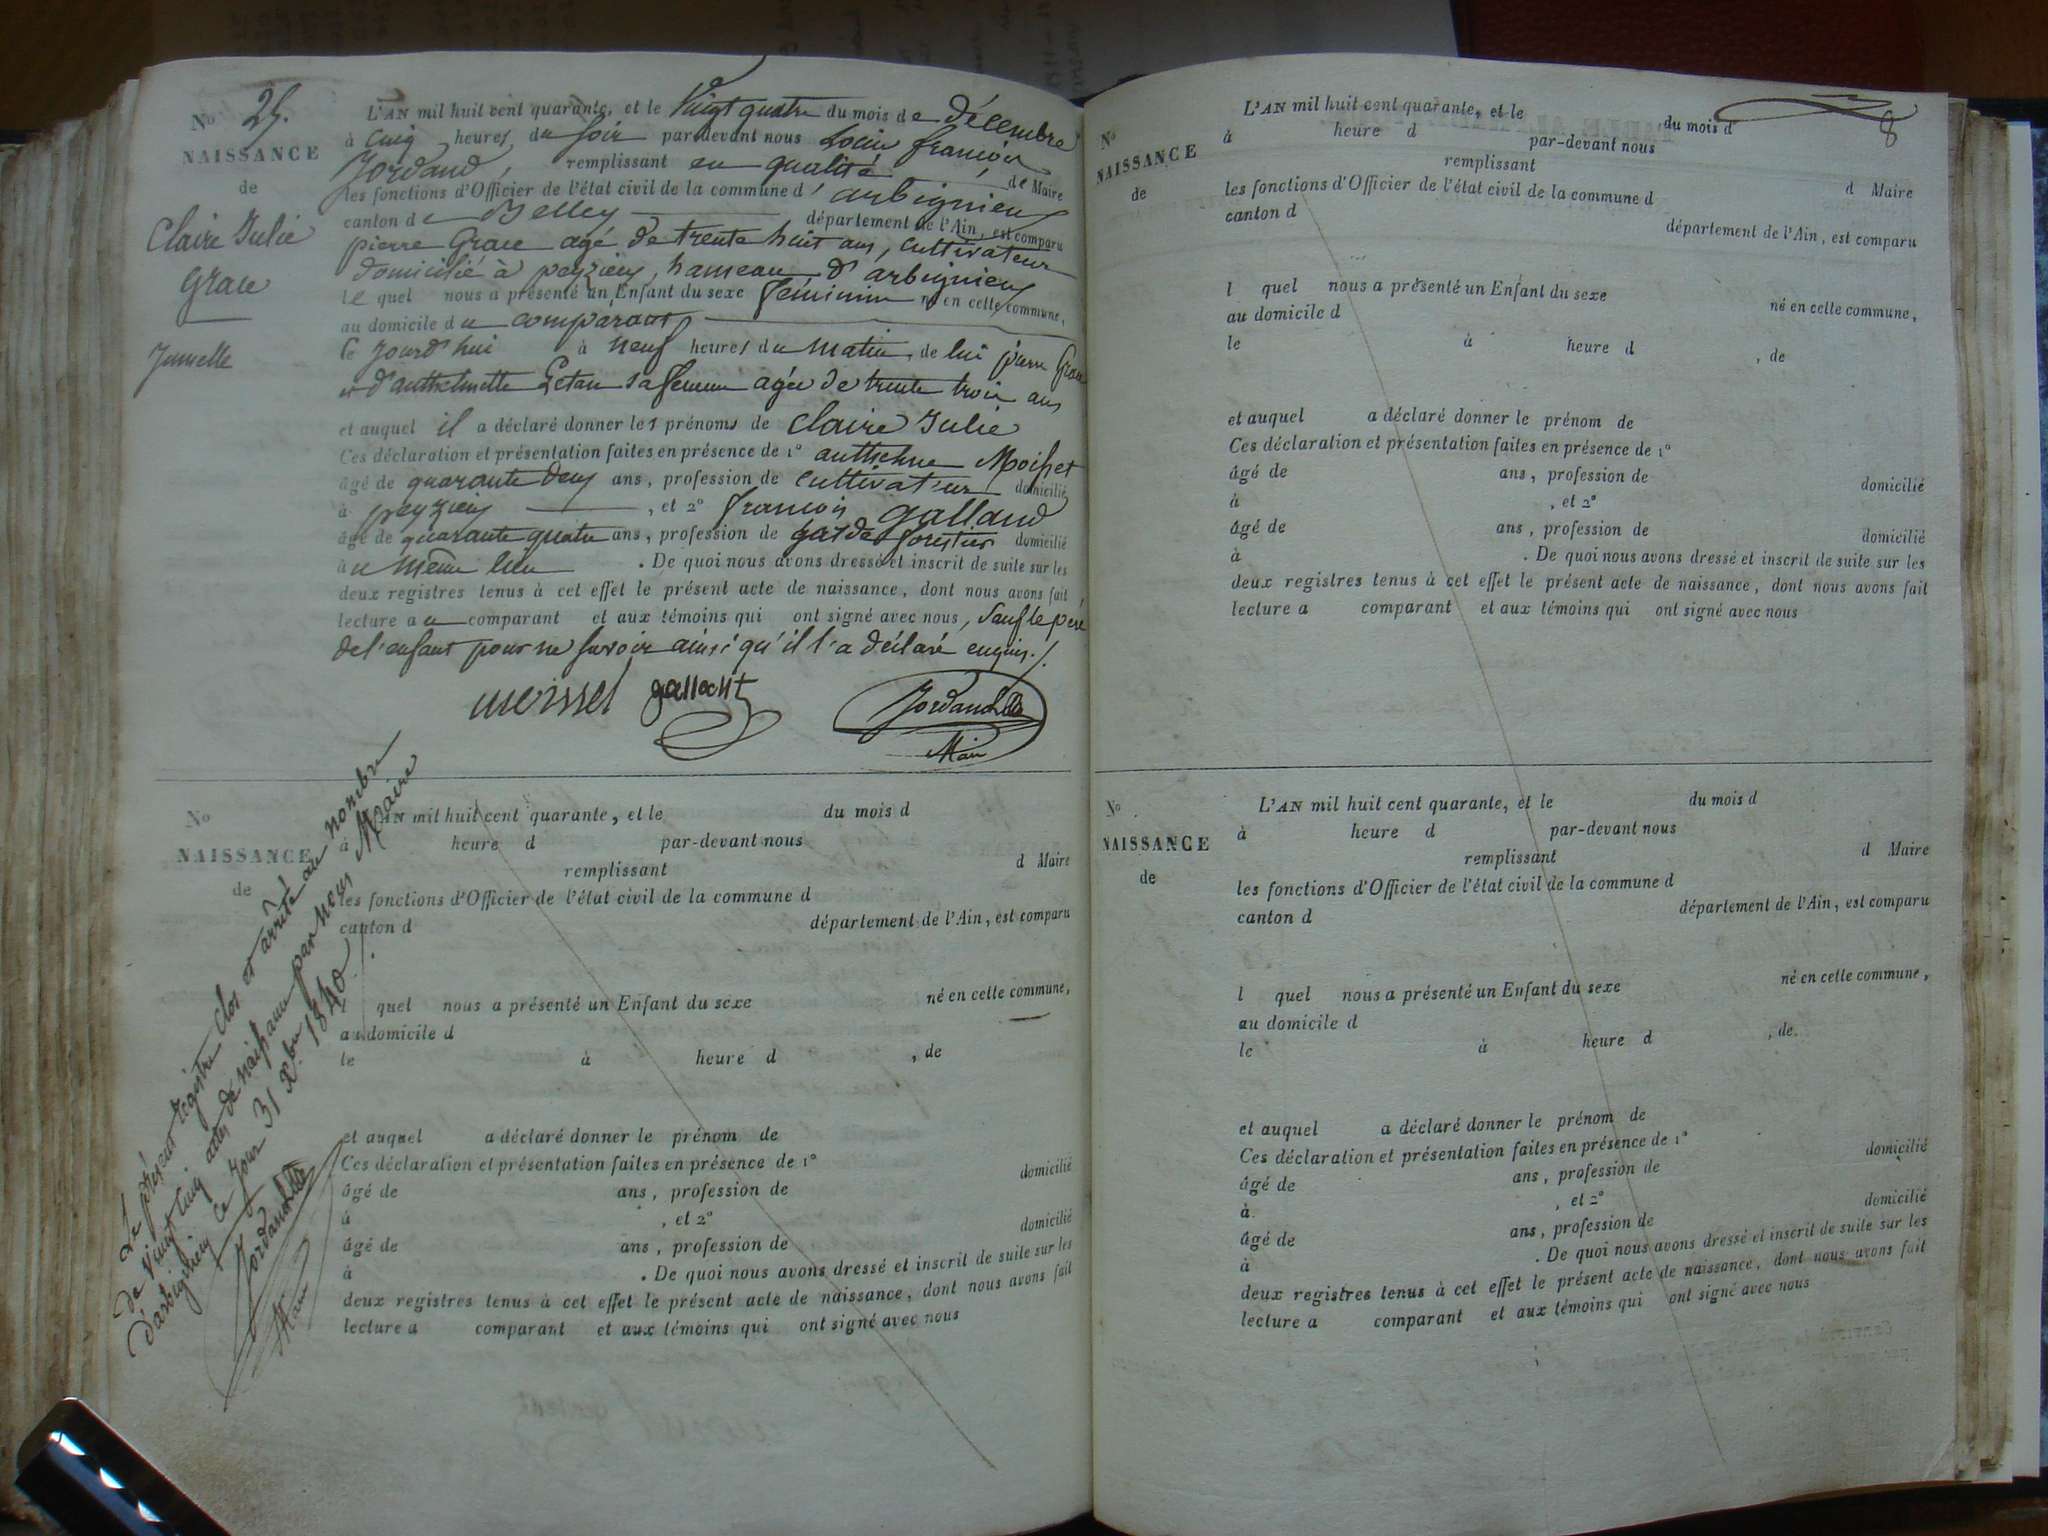 N° 25.
NAISSANCE
de
Claire Julie
Grace
Jumelle
L'AN mil huit cent quarante, et le vingt quatre du mois de décembre
à cinq heures du soir par devant nous Louis françois
Jordand, remplissant en qualité de Maire
les fonctions d'Officier de l'état civil de la commune d'arbignieu
canton de Belley département de l'Ain, est comparu
pierre Grace agé de trente huit ans, cultivateur
domicilié à peyzieu, hameau d'arbignieu
le quel nous a présenté un Enfant du sexe féminin né en celle commune,
au domicile du comparant
le jourd'hui à neuf heures du matin, de lui pierre Grace
et d'anthelmette sa femme agée de trente trois ans
et auquel il a déclaré donner les prénoms de Claire Julie
Ces déclaration et présentation faites en présence de 1° anthelme Moisset
âgé de quarante deux ans, profession de cultivateur domicilié
à peyzieu, et 2° francois galland
âgé de quarante quatre ans, profession de garde forestier domicilié
au même lieu. De quoi nous avons dressé et inscrit de suite sur les
deux registres tenus à cet effet le présent acte de naissance, dont nous avons fait
lecture au comparant et aux témoins qui ont signé avec nous, sauf le pere
de l'enfant pour ne savoir ainsi qu'il l'a déclaré enquis./.
moisset galland Jordand
Maire
N°
NAISSANCE
de
L'AN mil huit cent quarante, et le du mois d
à heure d par-devant nous
remplissant d Maire
les fonctions d'Officier de l'état civil de la commune d
canton d département de l'Ain, est comparu
l quel nous a présenté un Enfant du sexe né en celle commune,
au domicile d
le à heure d , de
et auquel a déclaré donner le prénom de
Ces déclaration et présentation faites en présence de 1°
âgé de ans, profession de domicilié
à , et 2°
âgé de ans, profession de domicilié
à . De quoi nous avons dressé et inscrit de suite sur les
deux registres tenus à cet effet le présent acte de naissance, dont nous avons fait
lecture a comparant et aux témoins qui ont signé avec nous
Le présent registre clos et arrêté au nombre
de vingt cinq actes de naissance par nous Maire
d'arbignieu ce jour 31 Xbre 1840
Jordand
Maire
8
N°
NAISSANCE
de
L'AN mil huit cent quarante, et le du mois d
à heure d par-devant nous
remplissant d Maire
les fonctions d'Officier de l'état civil de la commune d
canton d département de l'Ain, est comparu
l quel nous a présenté un Enfant du sexe né en celle commune,
au domicile d
le à heure d , de
et auquel a déclaré donner le prénom de
Ces déclaration et présentation faites en présence de 1°
âgé de ans, profession de domicilié
à , et 2°
âgé de ans, profession de domicilié
à . De quoi nous avons dressé et inscrit de suite sur les
deux registres tenus à cet effet le présent acte de naissance, dont nous avons fait
lecture a comparant et aux témoins qui ont signé avec nous
N°
NAISSANCE
de
L'AN mil huit cent quarante, et le du mois d
à heure d par-devant nous
remplissant d Maire
les fonctions d'Officier de l'état civil de la commune d
canton d département de l'Ain, est comparu
l quel nous a présenté un Enfant du sexe né en celle commune,
au domicile d
le à heure d , de
et auquel a déclaré donner le prénom de
Ces déclaration et présentation faites en présence de 1°
âgé de ans, profession de domicilié
à , et 2°
âgé de ans, profession de domicilié
à . De quoi nous avons dressé et inscrit de suite sur les
deux registres tenus à cet effet le présent acte de naissance, dont nous avons fait
lecture a comparant et aux témoins qui ont signé avec nous